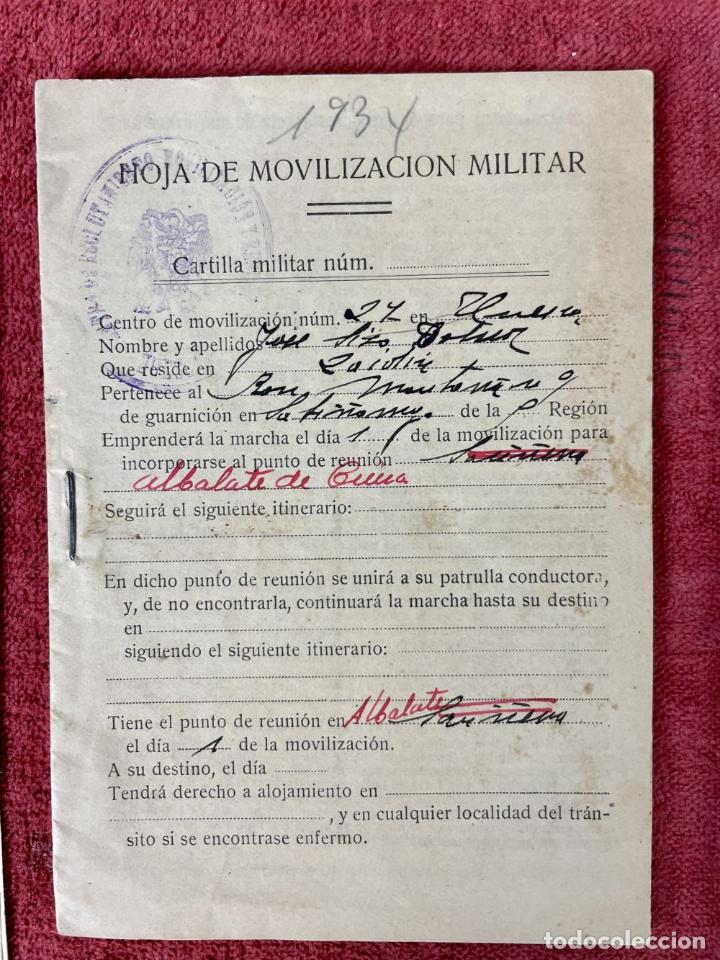 1934
HOJA DE MOVILIZACION MILITAR
Cartilla militar núm.
Centro de movilización núm. 27 en Huesca
Nombre y apellidos José
Que reside en Zaidín
Pertenece al Montaña 9
de guarnición en de la Región
Emprenderá la marcha el día 1 de la movilización para
incorporarse al punto de reunión Sariñena
Albalate de Cinca
Seguirá el siguiente itinerario:
En dicho punto de reunión se unirá a su patrulla conductora,
y, de no encontrarla, continuará la marcha hasta su destino
en
siguiendo el siguiente itinerario:
Tiene el punto de reunión en Albalate Sariñena
el día 1 de la movilización.
A su destino, el día
Tendrá derecho a alojamiento en
, y en cualquier localidad del trán-
sito si se encontrase enfermo.
todocoleccion